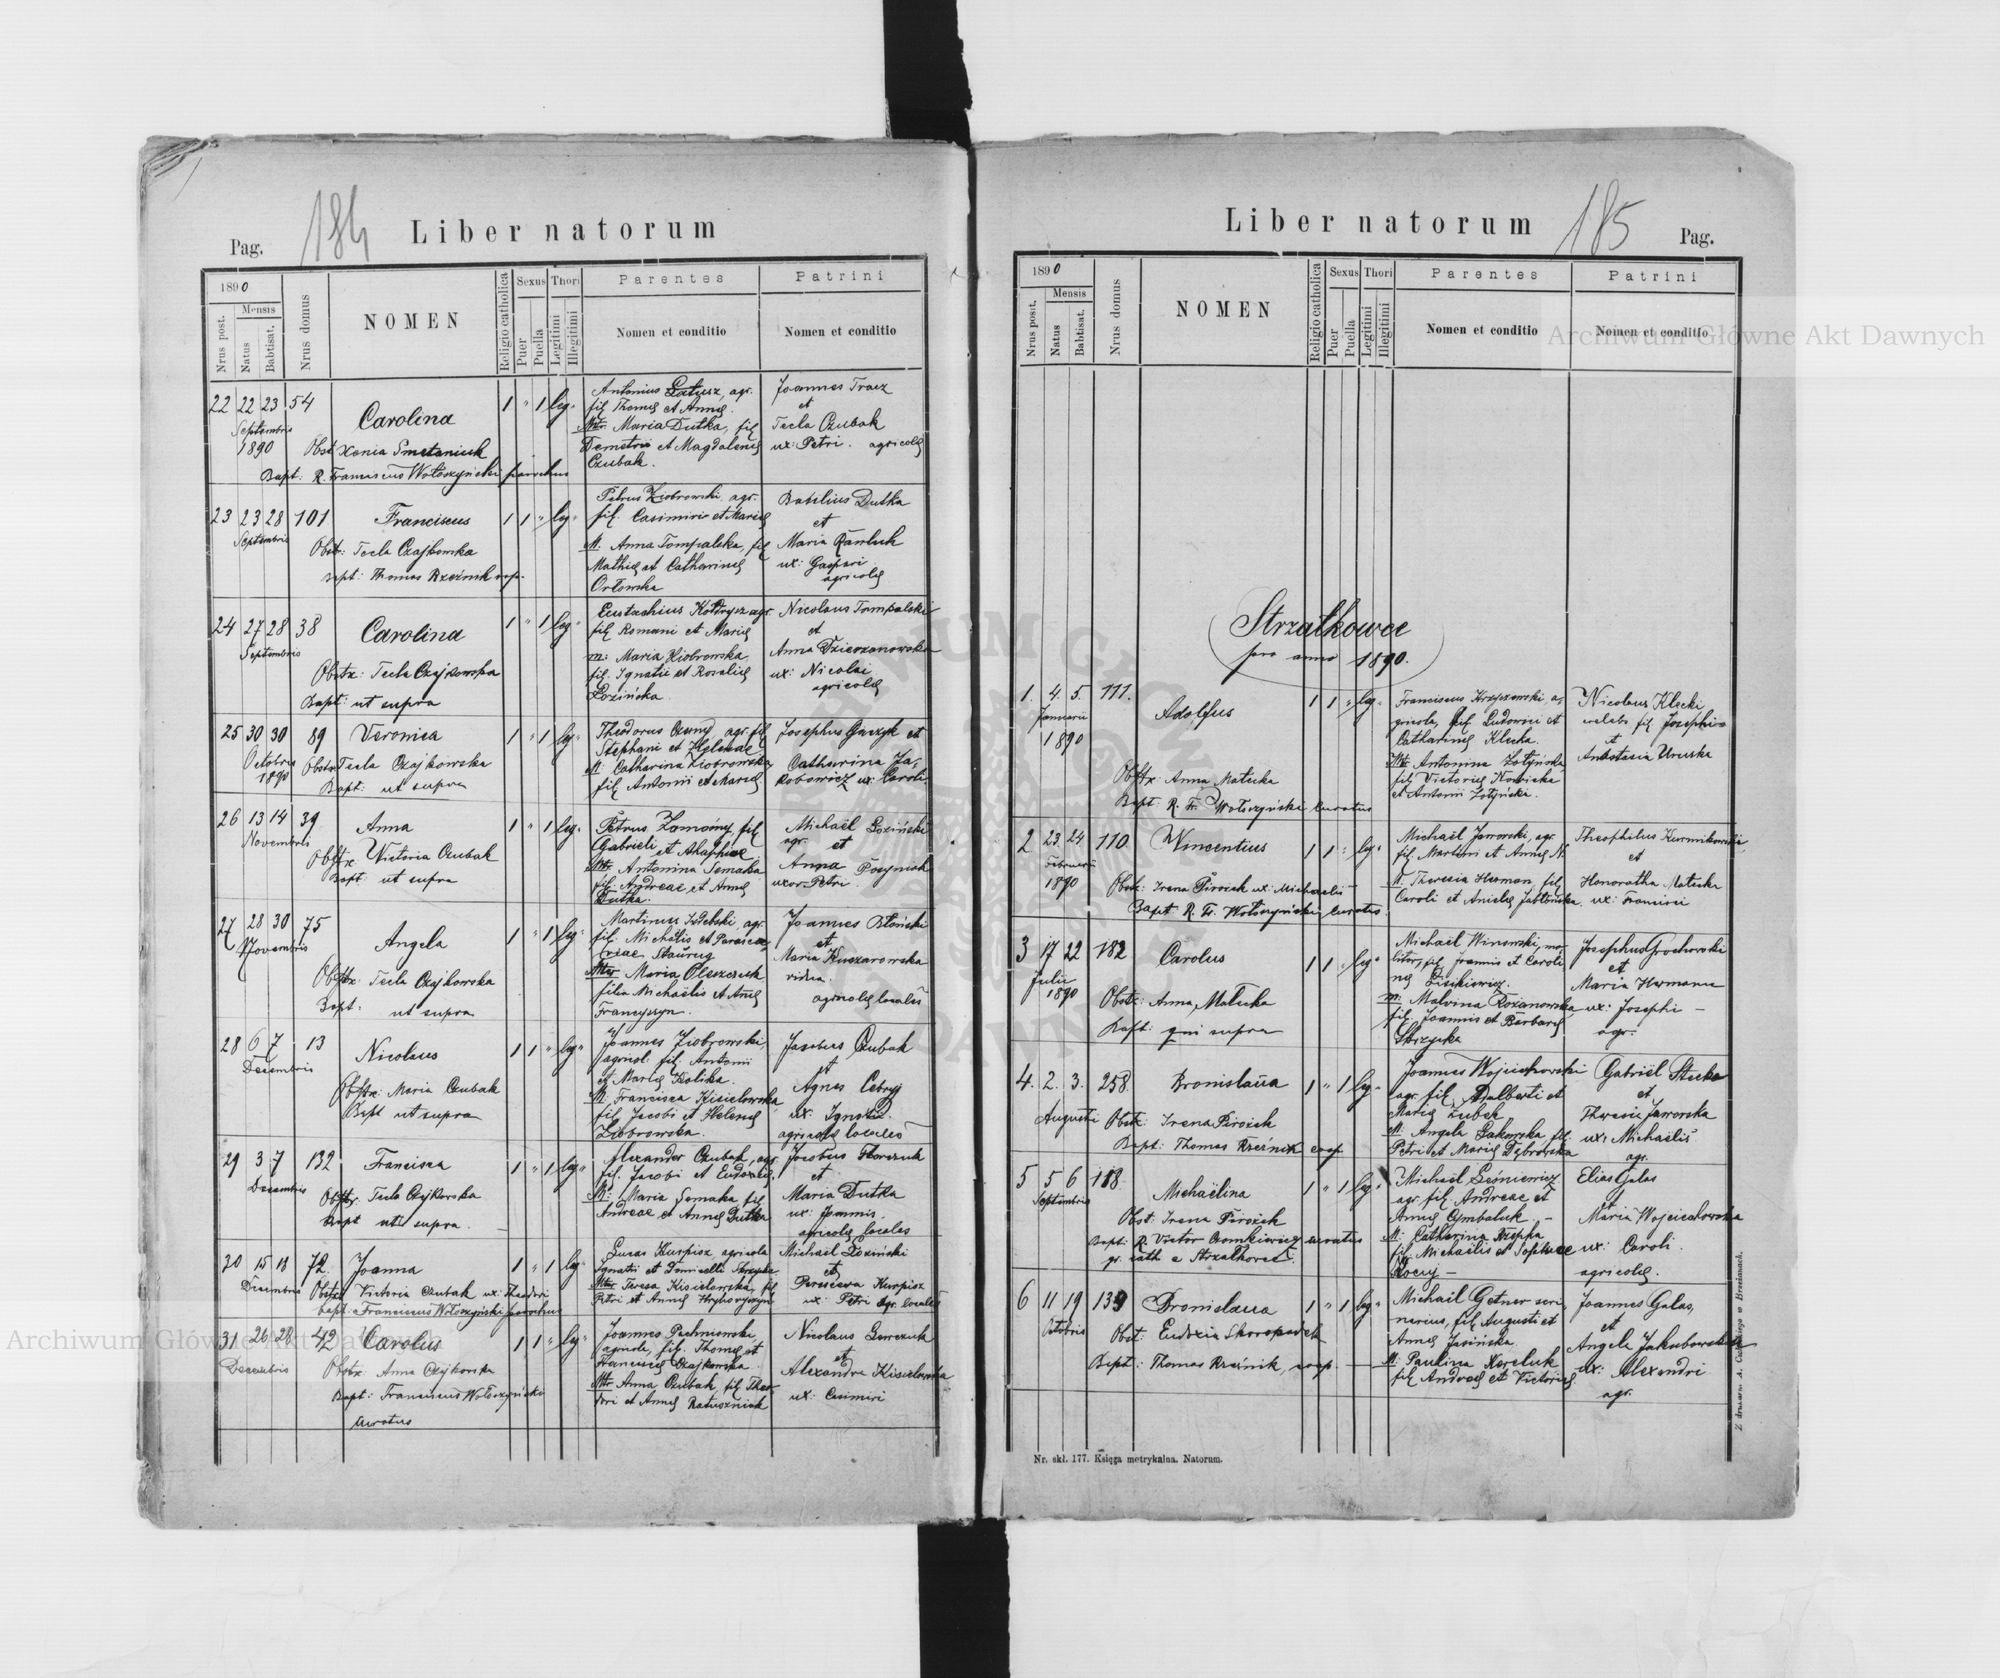 184
Pag.
Liber natorum
1890
Mensis
Nrus post.
Natus
Babtisat.
Nrus domus
NOMEN
Religio catholica
Sexus
Puer
Puella
Thori
Legitimi
Illegitimi
Parentes
Nomen et conditio
Patrini
Nomen et conditio
22 22 23 54
Septembris
1890
Carolina
Obst Xenia Smetaniuk
Bapt: R. Franciscus Wołoszyński parochus
1 " 1 leg"
Antonius Łatusz, agr.
fil Thomę et Annę.
Mtr Maria Dutka, fil
Demetrii et Magdalenę
Czubak.
Joannes Tracz
et
Tecla Czubak
ux: Petri. agricolę
23 23 28 101
Septembris
Franciscus
Obst: Tecla Czajkowska
Bapt: Thomas Rzeźnik coop.
1 1 " leg"
Petrus Ziobrowski, agr.
fil. Casimiri et Marię
M. Anna Tompalska, fil
Mathię et Catharinę
Orłowska
Basilius Dutka
et
Maria Rawluk
ux: Gaspari
agricolę
24 27 28 38
Septembris
Carolina
Obstx: Tecla Czajkowska
Bapt: ut supra
1 " 1 leg"
Eustachius Kołdrysz agr.
fil Romani et Marię
m: Maria Ziobrowska
fil. Ignatii et Rosalię
Łozińska.
Nicolaus Tompalski
et
Anna Dzierzanowska
ux: Nicolai
agricolę
25 30 30 89
Octobris
1890
Veronica
Obstx Tecla Czajkowska
Bapt: ut supra
1 " 1 leg"
Theodorus Czerny agr. fil
Stephani et Helenae
M: Catharina Ziobrowska
fil Antonii et Marię
Josephus Garzyk et
Catharina Ja-
kobowicz ux: Caroli
26 13 14 39
Novembris
Anna
Obstx Victoria Czubak
Bapt: ut supra
1 " 1 leg"
Petrus Zamojny, fil
Gabrieli et Ahaphiae
Mtr Antonina Semaka
fil. Andreae et Annę
Dutka.
Michaël Łoziński
agr. et
Anna Posyniak
uxor Petri
27 28 30 75
Novembris
Angela
Obstx Tecla Czajkowska
Bapt: ut supra
1 " 1 leg"
Martinus Izdebski, agr.
fil. Michaëlis et Parasce-
Mtr Maria Oleszczuk
filia Michaëlis et Annę
Franczyszyn.
Joannes Błoński
et
Maria Kuczarowska
vidua.
agricolę locales
28 6 7 13
Decembris
Nicolaus
Obstx: Maria Czubak
Bapt ut supra
1 1 " leg"
Joannes Ziobrowski,
agricol. fil. Antonii
et Marię Kolska.
M: Francisca Kisielowska
fil Jacobi et Helenę
Ziobrowska.
Jacobus Czubak
et
Agnes Cebryj
ux: Ignatii
agricolę locales
29 3 7 132
Decembris
Francisca
Obstx: Tecla Czajkowska
Bapt ut supra.
1 " 1 leg"
Alexander Czubak, agr.
fil. Jacobi et Eudoxię
M: Maria Semaka fil
Andreae et Annę Dutka
Jacobus Storczuk
et
Maria Dutka
ux: Joannis.
agricolę locales
30 15 18 72
Decembris
Joanna
Obstx Victoria Czubak ux: Theodori
bapt: Franciscus Wołoszyński parochus
1 " 1 leg"
Lucas Kurpisz agricola
Mtr Teresa Kisielowska, fil
Petri et Annę Hryhoryszyn
Michaël Łoziński
et
Parasceva Kurpisz
ux: Petri agr. locales
31 26 28 42
Decembris
Carolus
Obstx: Anna Czajkowska
Bapt: Franciscus Wołoszyński
curatus
1 1 " leg"
Joannes Pachniowski,
agricola, fil. Thomę et
Franciscę Czajkowska
Mtr Anna Czubak, fil Theo-
dori et Annę Ratuszniak
Nicolaus Szewczuk
et
Alexandra Kisielowska
ux: Casimiri
Liber natorum
185
Pag.
1890
Mensis
Nrus posit.
Natus
Babtisat.
Nrus domus
NOMEN
Religio catholica
Sexus
Puer
Puella
Thori
Legitimi
Illegitimi
Parentes
Nomen et conditio
Patrini
Nomen et conditio
Strzałkowce
pro anno 1890.
1. 4. 5. 111.
Januarii
1890
Adolfus
Obstx: Anna Matecka
Bapt: R. Fr. Wołoszyński curatus
1 1 " leg"
Franciscus Krzyżowski a-
gricola, fil Ludovici et
Catharinę Klecka.
Mtr Antonina Żołyńska
fil Victorię Nowicka
et Antonii Żołyński.
Nicolaus Klecki
caelebs fil. Josephi
et
Anastasia Uruska
2 23. 24 110
Februarii
1890
Wincentius
Obstx: Irena Pirożek ux: Michaelis
Bapt R. Fr. Wołoszyński curatus.
1 1 " leg"
Michaël Jaworski, agr
fil. Martini et Annę N.
M. Theresia Herman, fil
Caroli et Anielę Jabłońska
Theophilus Kurnikowski
et
Honoratha Matecka
ux: Francisci
3 17 22 182
Julii
1890
Carolus
Obstx: Anna Matecka
Bapt: qui supra
1 1 " leg"
Michaël Winowski, mo-
litor, fil Joannis et Caroli-
nę Lisikiewicz.
m: Malvina Rożanowska
fil. Joannis et Barbarę
Skrzycka
Josephus Grochowski
et
Maria Hermann
ux: Josephi
agr.
4. 2. 3. 258.
Augusti
Bronislava
Obstx: Irena Pirożek
Bapt: Thomas Rzeźnik coop
1 " 1 leg"
Joannes Wojciechowski
agr. fil. Adalberti et
Marię Zubek
M: Angela Sakowska fil.
Petri et Marię Dąbrowska
Gabriël Stecko
et
Theresia Jaworska
ux: Michaëlis
agr.
5 5 6 188
Septembris
Michaëlina
Obst: Irena Pirożek
Bapt: R. Victor Czomkiewicz curatus
gr. cath e Strzałkowce.
1 " 1 leg"
Michaël Leśniewicz
agr. fil. Andreae et
Annę Cymbaluk
M: Catharina Rzeppa
fil Michaëlis et Sophiae
Kocuj
Elias Galas
et
Maria Wojciechowska
ux: Caroli.
agricolę.
6 11 19 139
Octobris
Bronislava
Obst: Eudoxia Skoropadek
Bapt: Thomas Rzeźnik, coop.
1 " 1 leg"
Michaël Getner scri-
narius, fil Augusti et
Annę Jasińska
M: Paulina Koreluk
fil Andreę et Victorię
Joannes Galas,
et
Angela Jakubowska
ux: Alexandri
agr.
Nr. skł. 177. Księga metrykalna. Natorum.
Archiwum Główne Akt Dawnych
Archiwum Główne Akt Dawnych